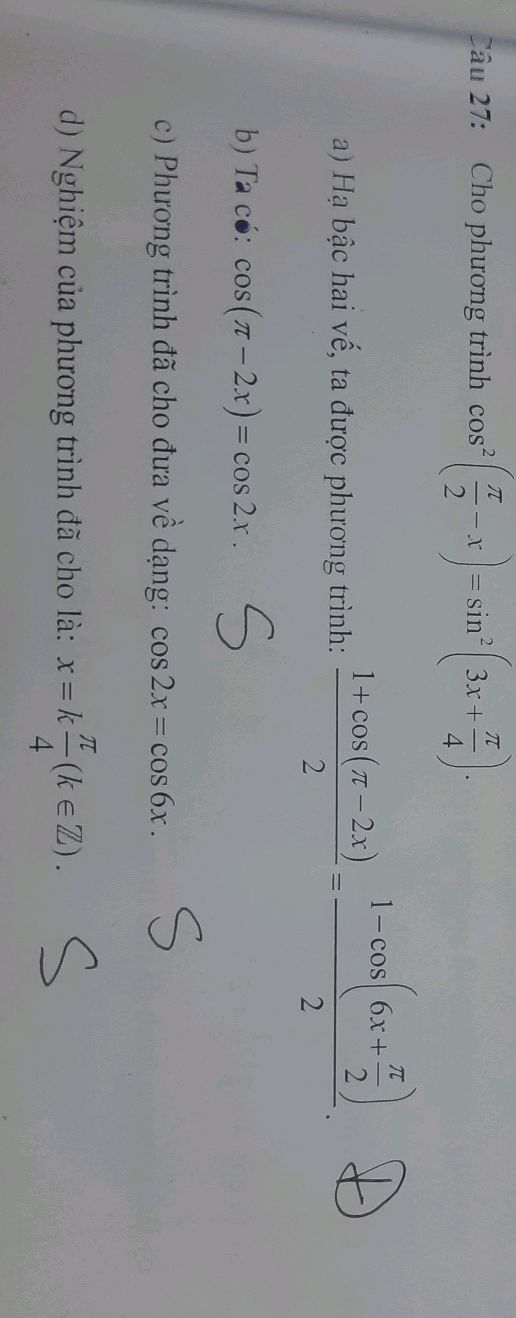 Câu 27: Cho phương trình cos²(π/2 − x) = sin²(3x + π/4).
a) Hạ bậc hai vế, ta được phương trình: (1 + cos(π − 2x))/2 = (1 − cos(6x + π/2))/2. Đ
b) Ta có: cos(π − 2x) = cos 2x. S
c) Phương trình đã cho đưa về dạng: cos 2x = cos 6x. S
d) Nghiệm của phương trình đã cho là: x = k π/4 (k ∈ ℤ). S